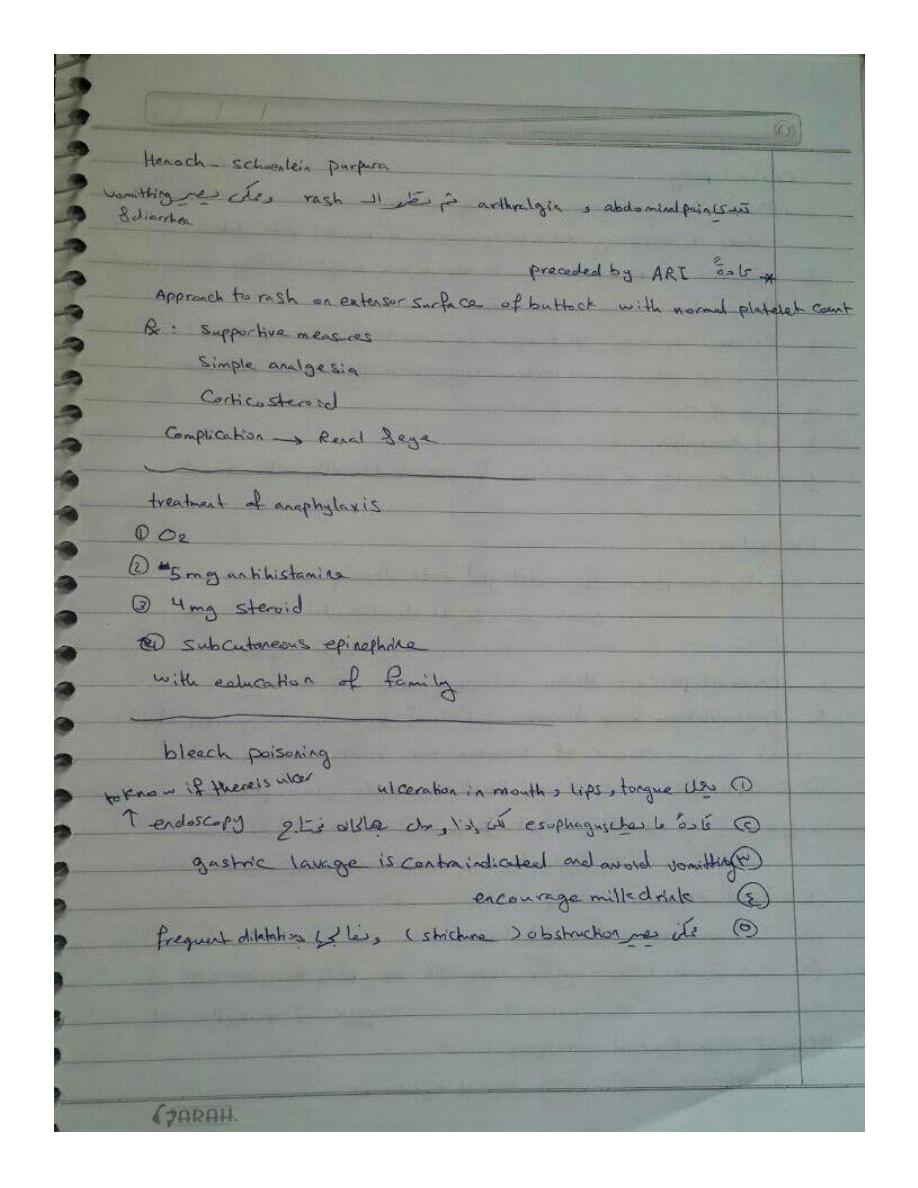 Henoch - schoenlein purpura
تبدي abdominal pain و arthralgia ثم تظهر الـ rash وممكن يصير vomitting
& diarrhea
* عادةً preceded by ARI
Approach to rash on extensor surface of buttock with normal platelet count
Rx : Supportive measures
Simple analgesia
Corticosteroid
Complication → Renal
treatment of anaphylaxis
① O2
② 5mg antihistamine
③ 4mg steroid
④ subcutaneous epinephrine
with education of family
bleech poisoning
① يعمل ulceration in mouth, lips, tongue
② عادةً ما يصل esophagus لكن إذا وصل هالحالة نحتاج endoscopy ↑
to know if there is ulcer
③ gastric lavage is contraindicated and avoid vomitting
④ encourage milk drink
⑤ ممكن يصير obstruction ( stricture ) ونعالجها بـ frequent dilatation
SARAH.